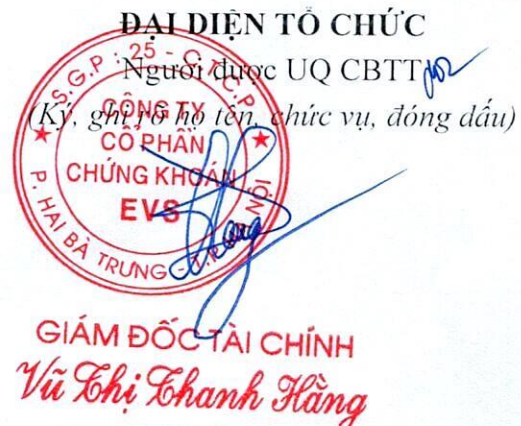 ĐẠI DIỆN TỔ CHỨC
Người được UQ CBTT
(Ký, ghi rõ họ tên, chức vụ, đóng dấu)
S.G.P: 25 - C.T.C.P
CÔNG TY
CỔ PHẦN
CHỨNG KHOÁN
EVS
P. HAI BÀ TRƯNG - T.P HÀ NỘI
GIÁM ĐỐC TÀI CHÍNH
Vũ Thị Thanh Hằng